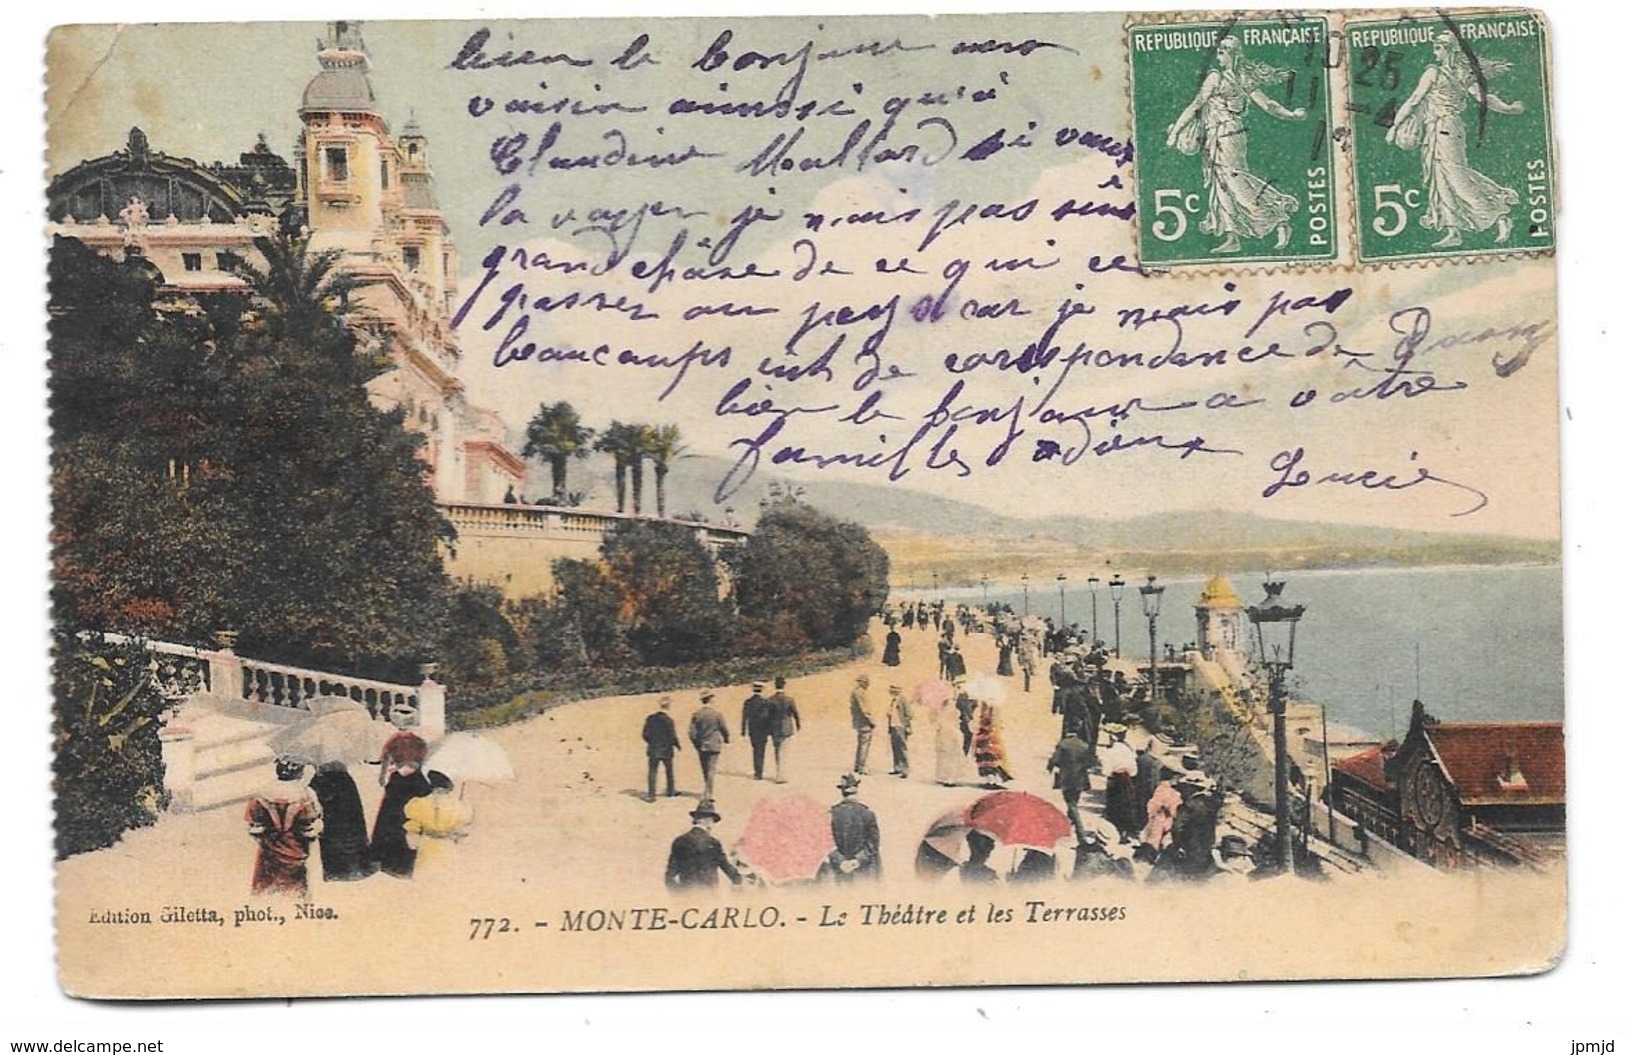 bien le bonjour
voisin ainssi qu'à
Claudine Mallard si vous
la voyer je n'ais pas
grand chôse de ce qui ce
passer au pays car je n'ais pas
beaucoups de corispondence de
bien le bonjour a vôtre
familles adieux
Lucie
REPUBLIQUE FRANÇAISE
5c POSTES
REPUBLIQUE FRANÇAISE
5c POSTES
10 25
11 -4
Edition Giletta, phot., Nice.
772. - MONTE-CARLO. - Le Théâtre et les Terrasses
www.delcampe.net
jpmjd